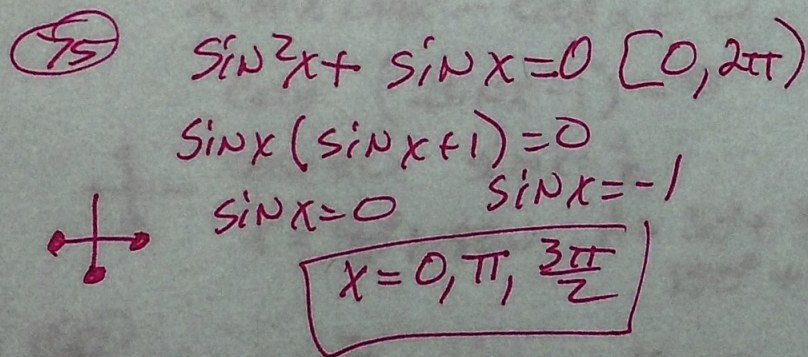 75 sin²x + sin x = 0 [0, 2π)
sin x (sin x + 1) = 0
sin x = 0 sin x = -1
x = 0, π, 3π/2